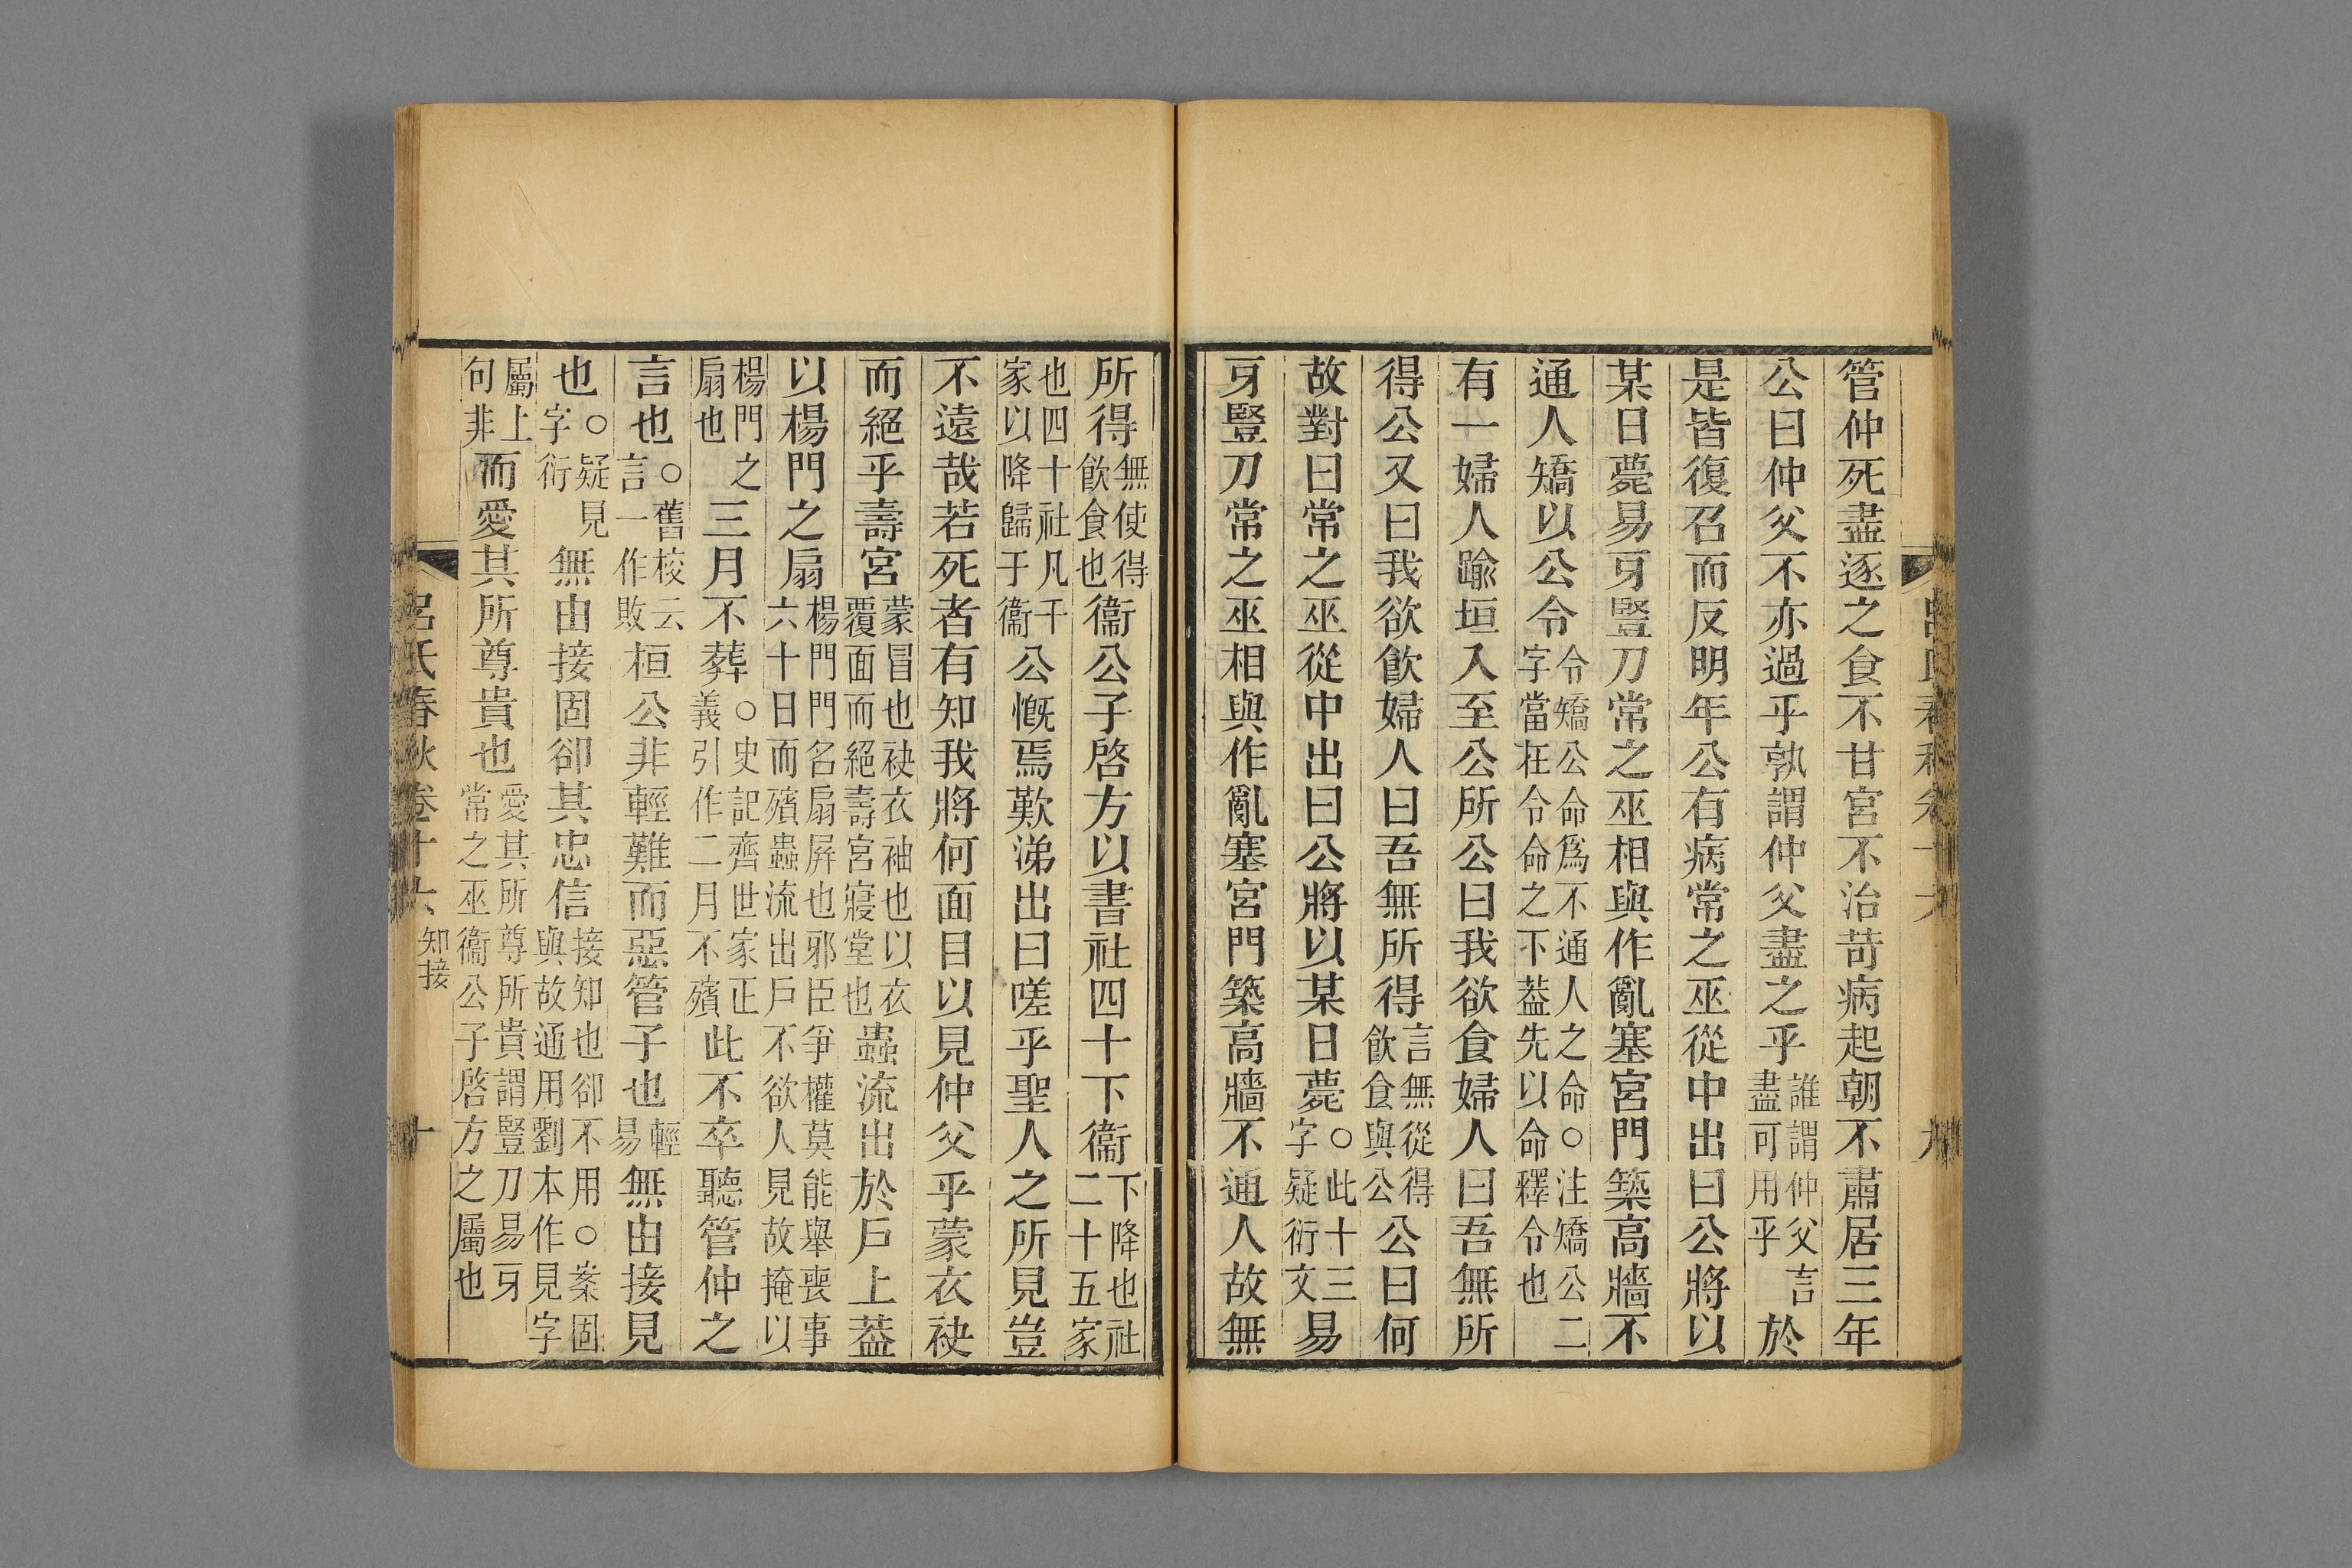 管仲死盡逐之食不甘宮不治苛病起朝不肅居三年
公曰仲父不亦過乎孰謂仲父盡之乎誰謂仲父言盡可用乎於
是皆復召而反明年公有病常之巫從中出曰公將以
某日薨易牙豎刀常之巫相與作亂塞宮門築高牆不
通人矯以公令令矯公命爲不通人之命○注矯公二字當在令命之下葢先以命釋令也
有一婦人踰垣入至公所公曰我欲食婦人曰吾無所
得公又曰我欲飮婦人曰吾無所得言無從得飮食與公公曰何
故對曰常之巫從中出曰公將以某日薨○此十三字疑衍文易
牙豎刀常之巫相與作亂塞宮門築高牆不通人故無
所得無使得飮食也衞公子啓方以書社四十下衞下降也社二十五家
也四十社凡千家以降歸于衞公慨焉歎涕出曰嗟乎聖人之所見豈
不遠哉若死者有知我將何面目以見仲父乎蒙衣袂
而絕乎壽宮蒙冒也袂衣袖也以衣覆面而絕壽宮寢堂也蟲流出於戶上葢
以楊門之扇楊門門名扇屛也邪臣爭權莫能舉喪事六十日而殯蟲流出戶不欲人見故掩以
楊門之扇也三月不葬○史記齊世家正義引作二月不殯此不卒聽管仲之
言也○舊校云言一作敗桓公非輕難而惡管子也輕易無由接見
也○疑見字衍無由接固卻其忠信接知也卻不用○案固與故通用劉本作見字
屬上句非而愛其所尊貴也愛其所尊所貴謂豎刀易牙常之巫衞公子啓方之屬也
呂氏春秋卷十六 知接 十